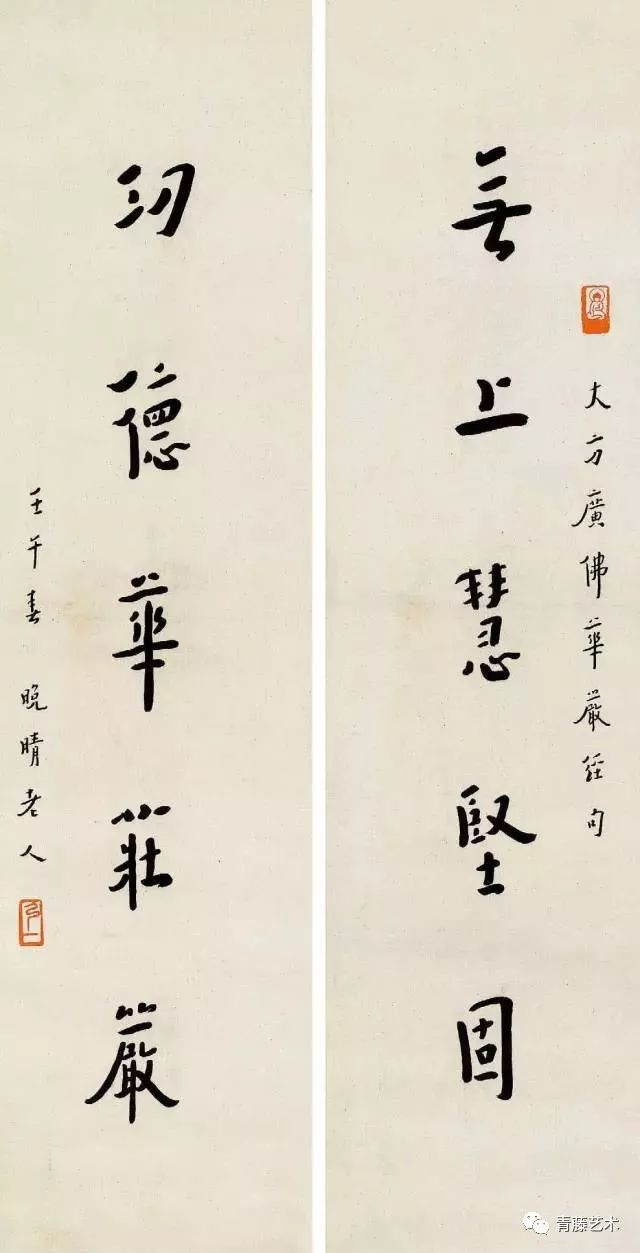 大方廣佛華嚴經句
無上慧堅固
功德華莊嚴
壬午春 晚晴老人
弘一
青藤艺术